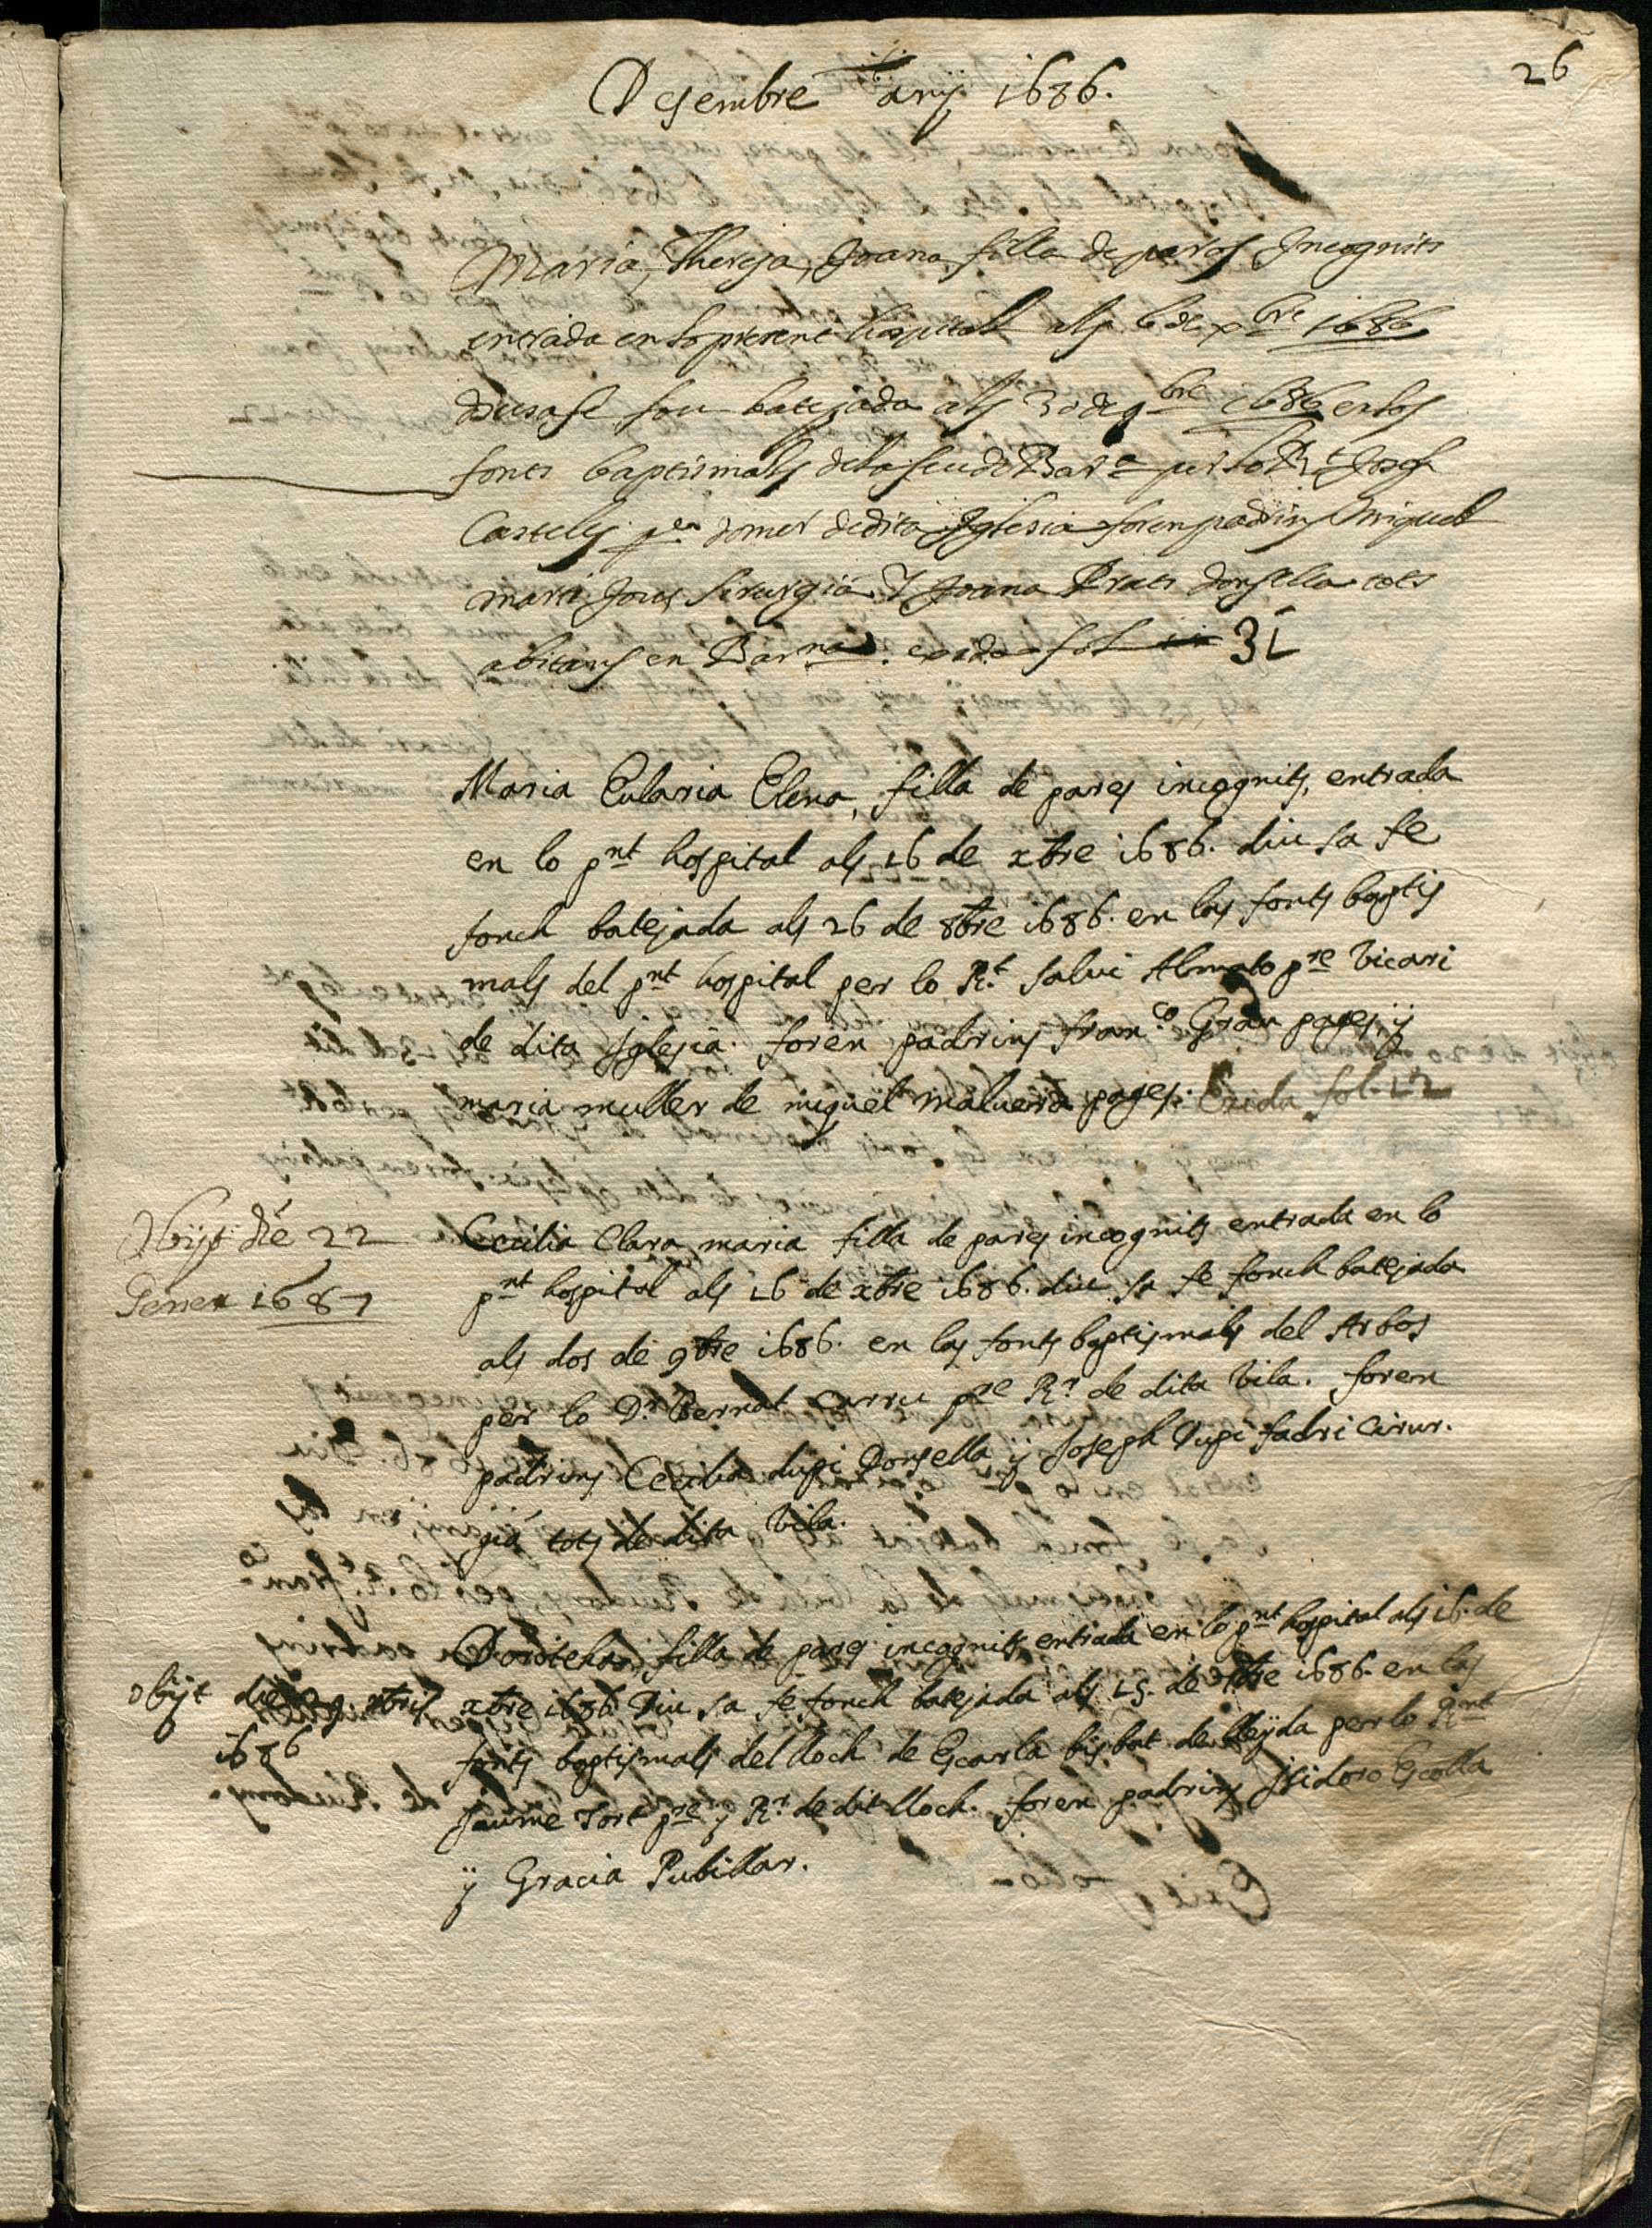 Desembre any 1686.
26
Maria, Theresa, Joana filla de pares Incognits
entrada en lo present hospital als 6 de xbre 1686
diu sa fe fou batejada als 30 de 9bre 1686 en los
fonts baptismals de la seu de Bar.a per lo Rt Josef
Castely domer de dita Iglesia foren padrins Miquel
marti Jove sirurgia Y Joana Prats donsella tots
abitans en Barna. exida fol 31
Maria Eularia Elena, filla de pares incognits, entrada
en lo pnt hospital als 16 de xbre 1686. diu sa fe
fonch batejada als 26 de 8bre 1686. en las fonts baptis
mals del pnt hospital per lo Rt. Salvi Almato pre Vicari
de dita Iglesia. foren padrins Fran.co Grau pages, y
maria muller de miquel maluerd pages. Exida fol. 22
Obijt die 22
Gener 1687
Cecilia Clara maria filla de pares incognits entrada en lo
pnt hospital als 16 de xbre 1686. diu sa fe fonch batejada
als dos de 9bre 1686. en las fonts baptismals del Arbos
per lo Dr. Bernat carru pre Rr de dita Vila. foren
padrins Cecilia dupi Donsella y Joseph Dupi fadri Cirur.
gia tots de dita Vila.
obijt die 29 xbris
1686
Dorothea, filla de pares incognits entrada en lo pnt hospital als 16. de
xbre 1686 Diu sa fe fonch batejada als 15. de xbre 1686. en las
fonts baptismals del lloch de Escarla bisbat de lleyda per lo Rnt
Jaume Fort pre y Rr de dit lloch. foren padrins Isidoro Escolla
y Gracia Pubillar.